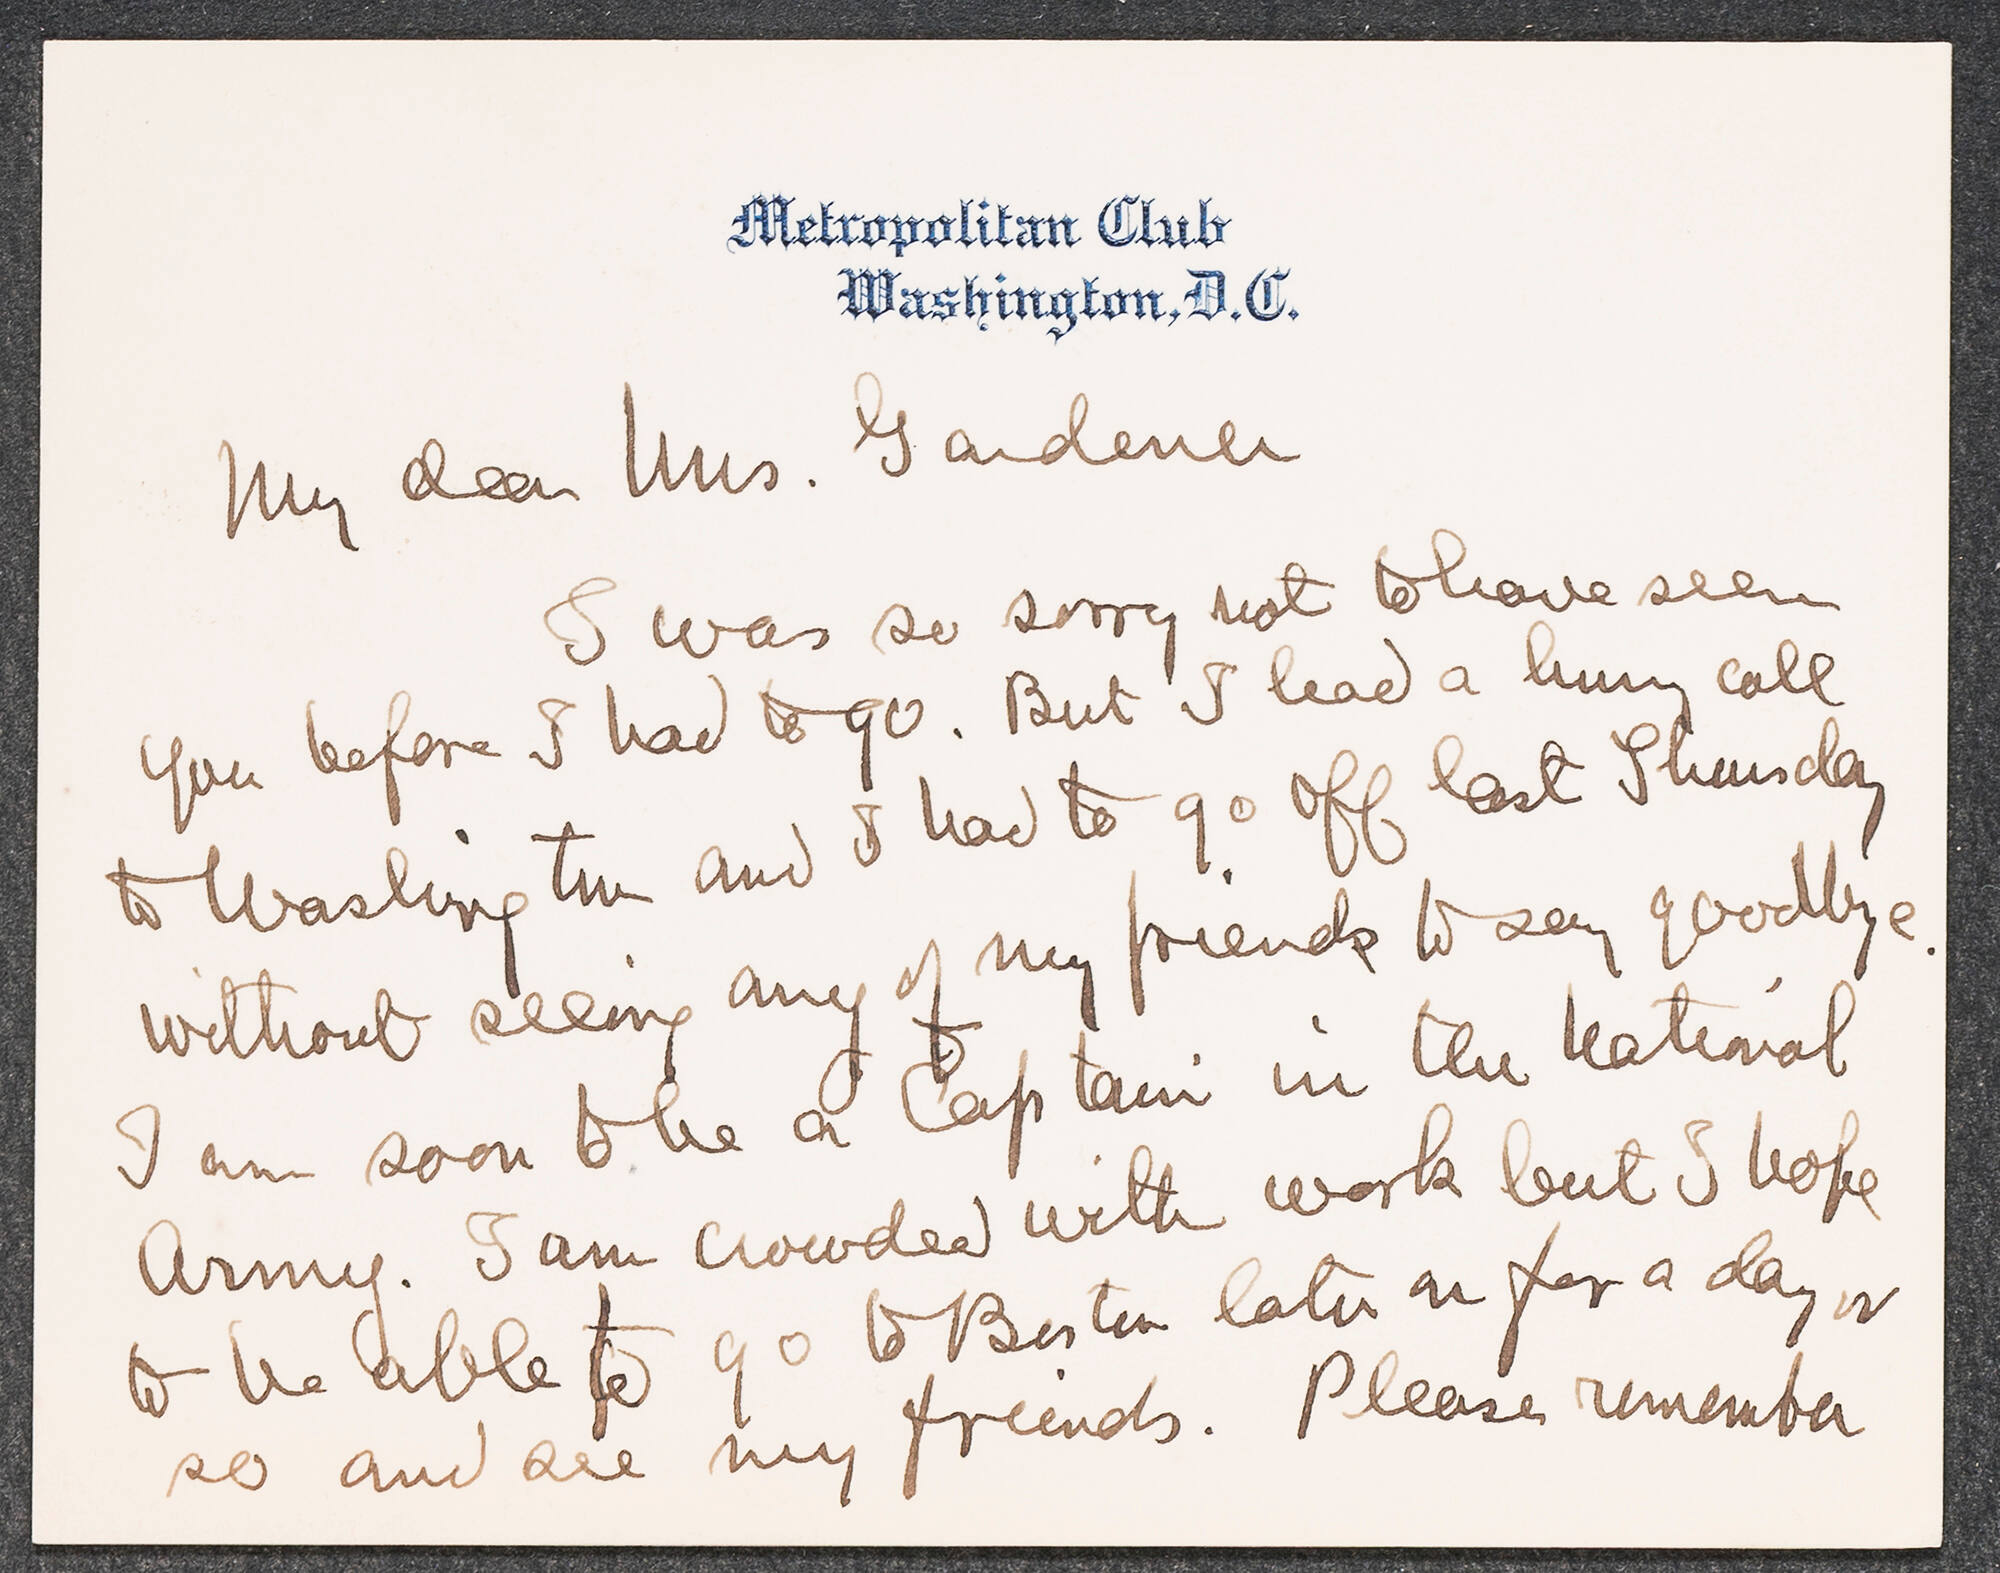 Metropolitan Club
Washington, D.C.
My dear Mrs. Gardener
I was so sorry not to have seen
you before I had to go. But I had a hurry call
to Washington and I had to go off last Thursday
without seeing any of my friends to say goodbye.
I am soon to be a Captain in the National
Army. I am crowded with work but I hope
to be able to go to Boston later on for a day or
so and see my friends. Please remember